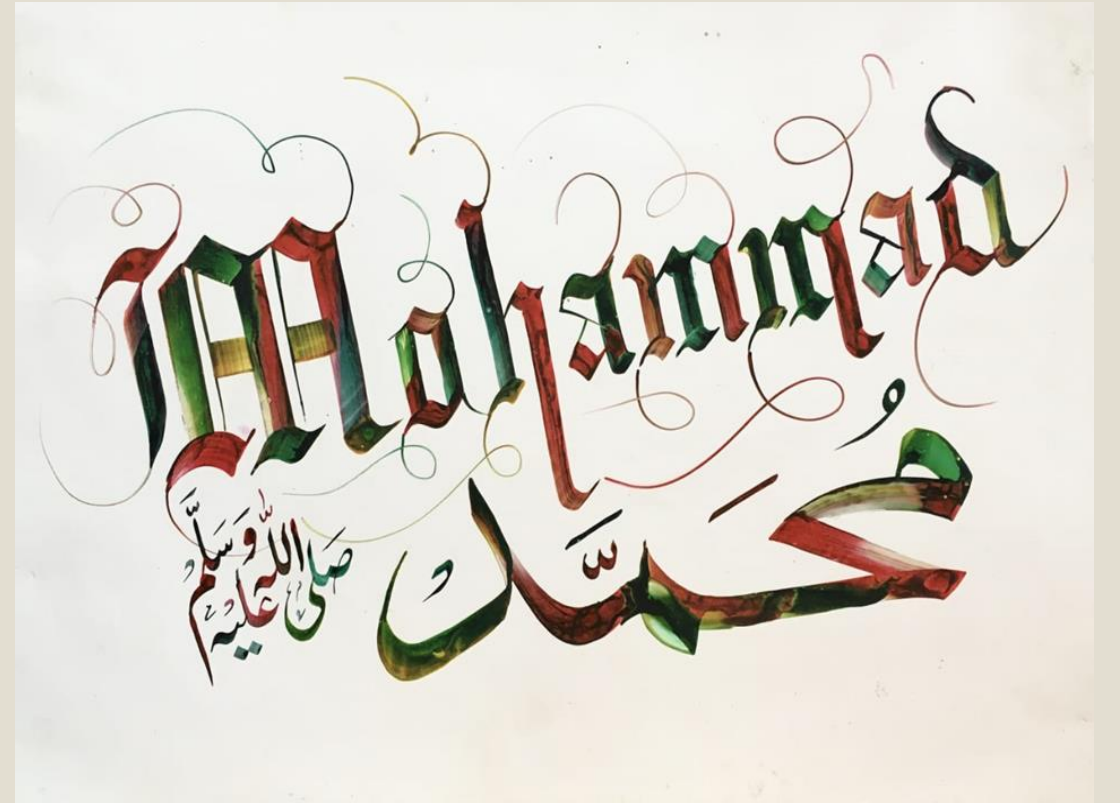 Mohammad
مُحَمَّد
صَلَّى اللّٰه عَلَيْهِ وَسَلَّم